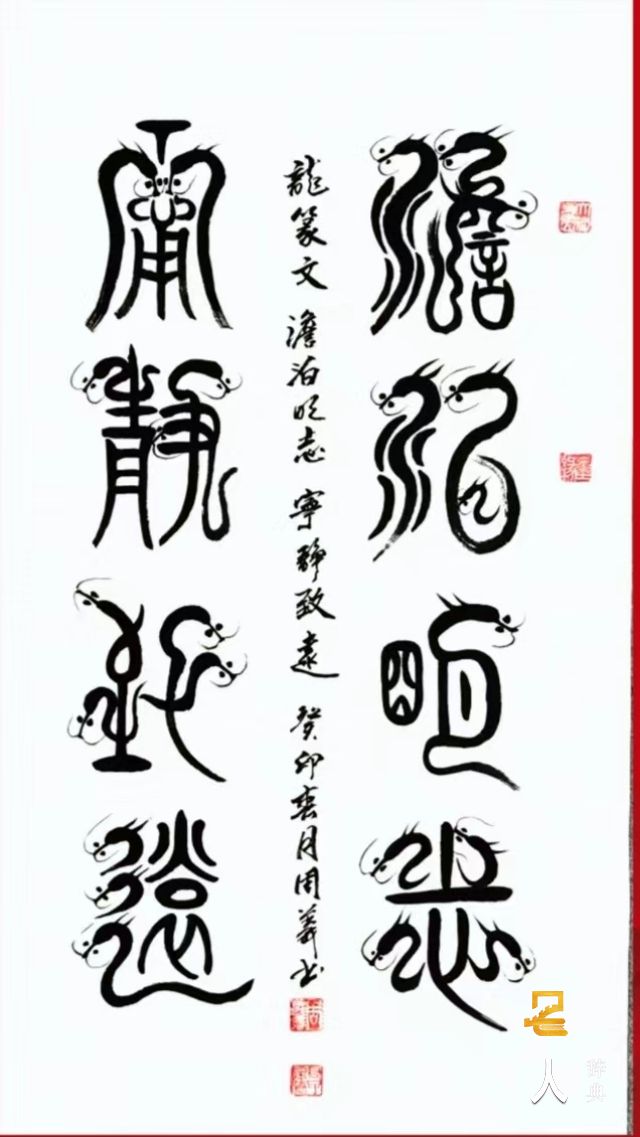 澹泊明志
龍篆文 澹泊明志 寧靜致遠 癸卯
月周
書
寧靜致遠
人
辞典